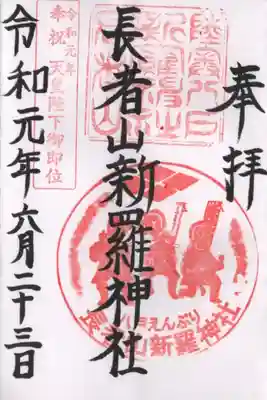 奉拝
長者山新羅神社
令和元年六月二十三日
令和元年
奉祝 天皇陛下御即位
えんぶり
長者山新羅神社